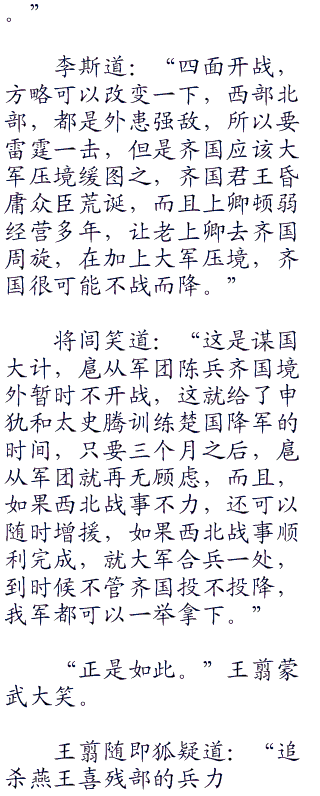 。”
李斯道：“四面开战，
方略可以改变一下，西部北
部，都是外患强敌，所以要
雷霆一击，但是齐国应该大
军压境缓图之，齐国君王昏
庸众臣荒诞，而且上卿顿弱
经营多年，让老上卿去齐国
周旋，在加上大军压境，齐
国很可能不战而降。”
将闾笑道：“这是谋国
大计，扈从军团陈兵齐国境
外暂时不开战，这就给了申
犰和太史腾训练楚国降军的
时间，只要三个月之后，扈
从军团就再无顾虑，而且，
如果西北战事不力，还可以
随时增援，如果西北战事顺
利完成，就大军合兵一处，
到时候不管齐国投不投降，
我军都可以一举拿下。”
“正是如此。”王翦蒙
武大笑。
王翦随即狐疑道：“追
杀燕王喜残部的兵力